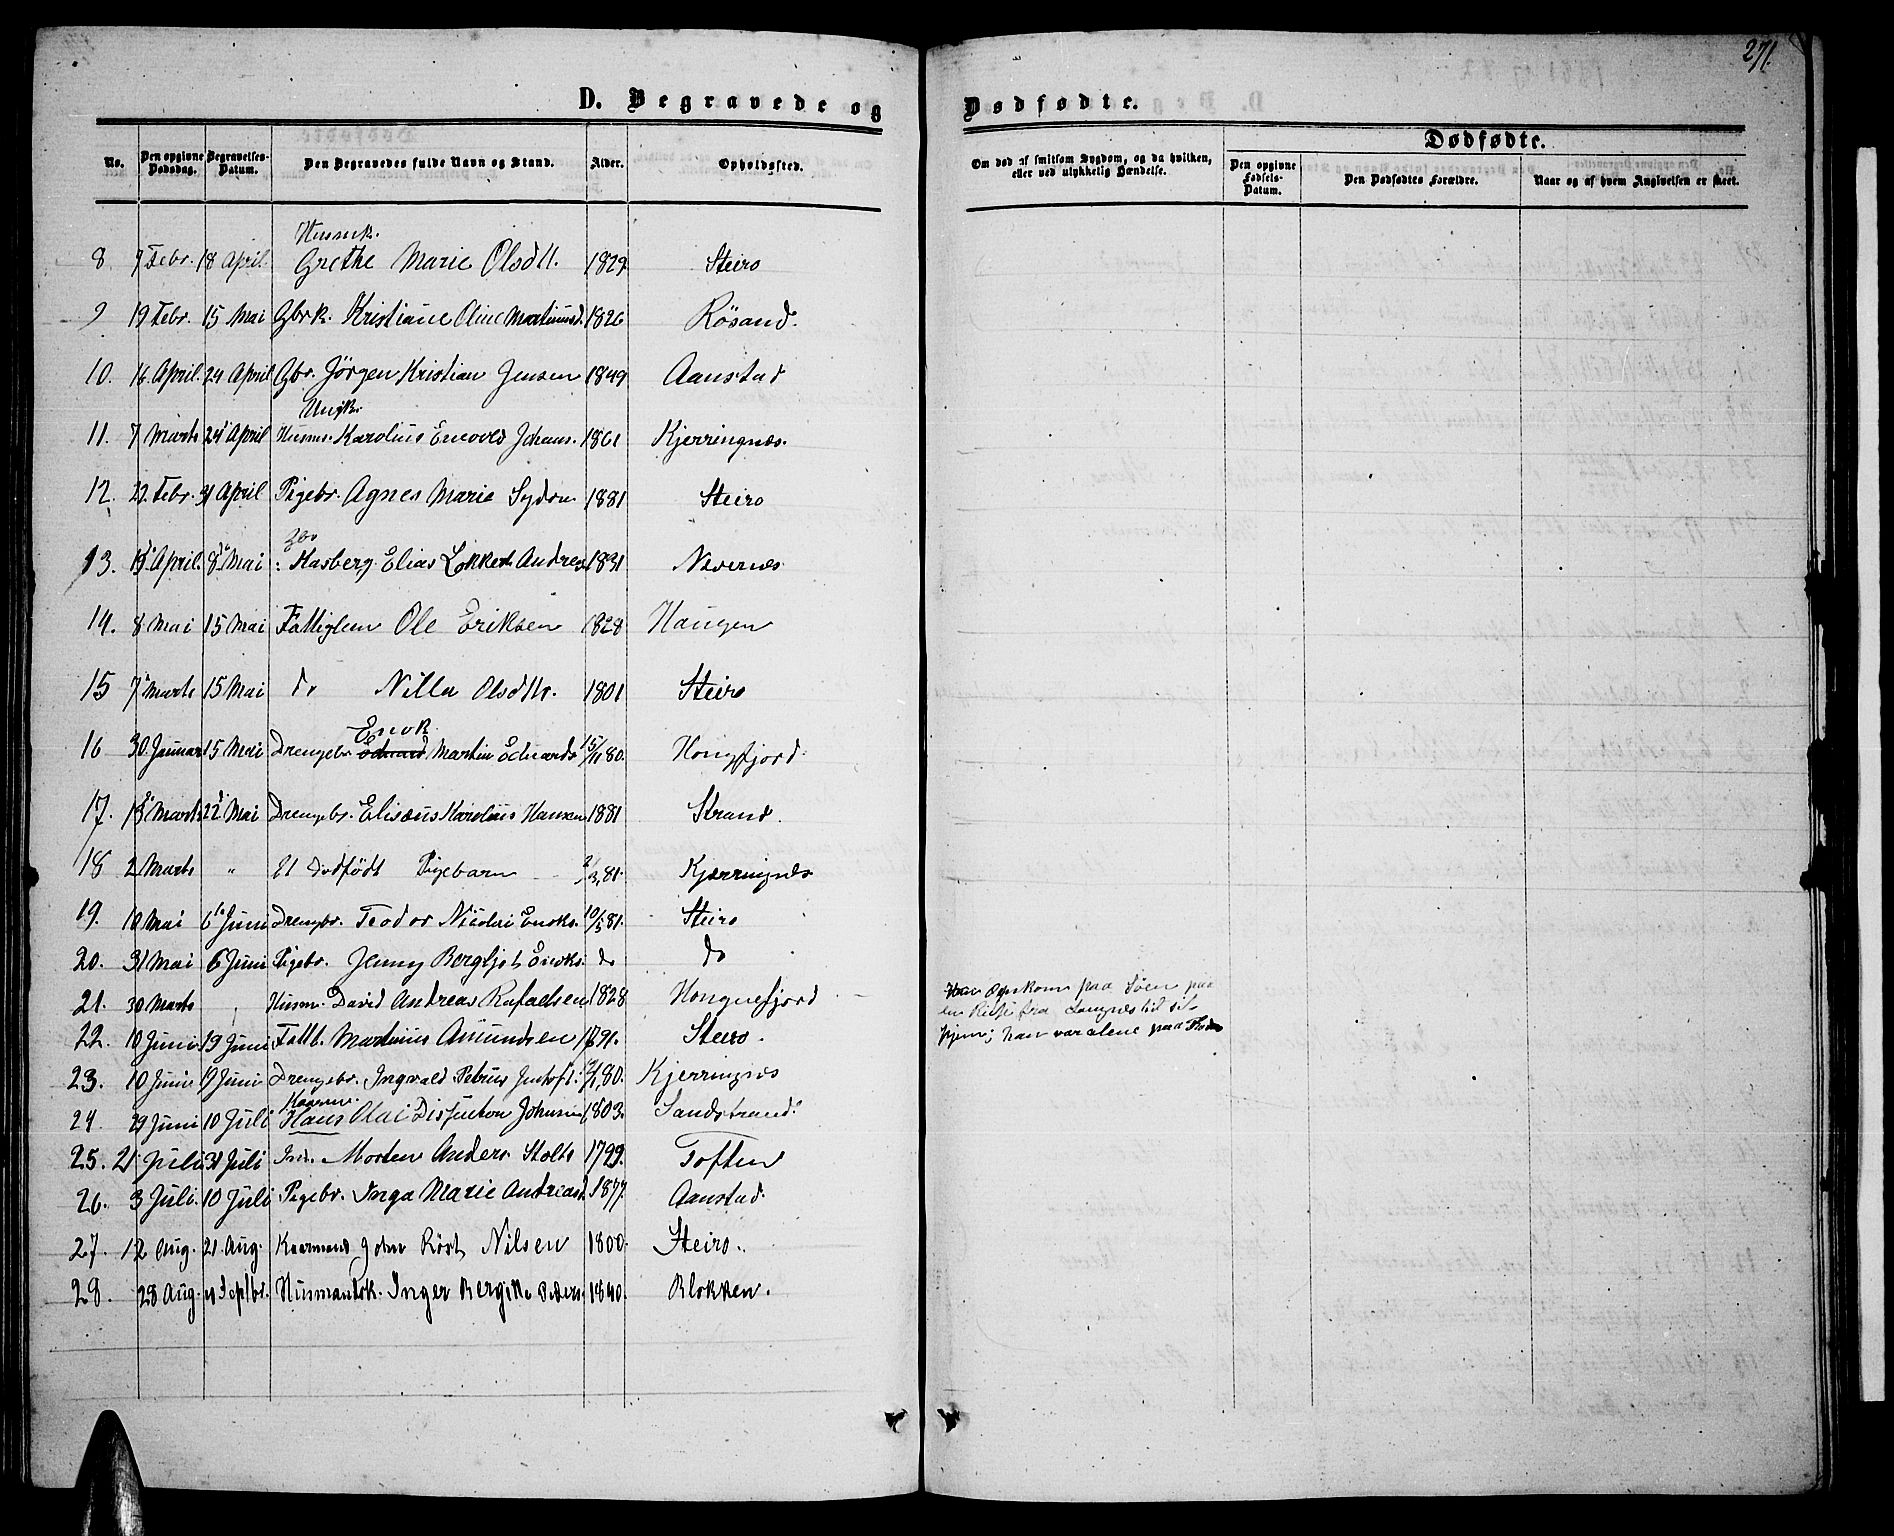 271.
D. Begravede og Dødfødte.
Dødfødte.
No. Den opgivne Dødsdag. Begravelses-Datum. Den Begravedes fulde Navn og Stand. Alder. Opholdssted. Om død af smitsom Sygdom, og da hvilken, eller ved ulykkelig Hændelse. Den opgivne Fødsels-Datum. Den Dødfødtes Forældre. Naar og af hvem Angivelsen er skeet.
8 7 Febr. 18 April Grethe Marie Olsdtr. 1829 Steiro
9 19 Febr. 15 Mai Gbrk. Kristiane Oline Martinusd. 1826 Rösand.
10. 16 April. 24 April Gbr. Jörgen Kristian Jensen 1849 Aanstad
Ungk.
11. 7 Marts 24 April Husms. Karolius Enovld Johans. 1861 Kjerringnæs.
12. 22 Febr. 31 April Pigebr. Agnes Marie Sydon 1881 Steiro
Gbr
13. April. 8 Mai Hasberg Elias Lokkert Andreas 1831 Nævernes
14. 8 Mai 15 Mai Fattiglem Ole Eriksen 1828 Haugen
15 7 Marts 15 Mai do Nilla Olsdtr. 1801 Steiro
Enok
16 30 Januar 15 Mai Drengebr. Eduard Martin Eduards 15/11 80. Hongfjord
17. 13 Marts 22 Mai Drengebr. Elisæus Karolius Hansen 1881 Strand.
18 2 Marts " Et Dödfödt Pigebarn 2/3 81. Kjærringnes
19. 10 Mai 6 Juni Drengbr. Teodor Nicolai Enoks. 10/5 81. Steiro
20. 31 Mai 6 Juni Pigebr. Jenny Bergljot Enoks. do do
21. 30 Marts " Husm. David Andreas Rafaelsen 1828 Hongnefjord Han Omkom paa Söen paa
en Reise fra Langnes til sit
Hjem; han var alene paa
22. 10 Juni 19 Juni Fattl. Martinus Amundsen 1791. Steiro.
23. 10 Juni 19 Juni Drengebr. Ingvald Petrus Jentoft. 80. Kjerringnes
Kaarm.
24 29 Juni 10 Juli Hans Olai Disfucton Johnsen 1803. Sandstrand.
25. 21 Juli 31 Juli Morten Anders Stolts 1799. Toften
26. 3 Juli. 10 Juli Pigebr. Inga Marie Andreasd. 1877 Aanstad.
27. 12 Aug. 21. Aug. Kaarmand John Röst Nilsen 1800. Steiro.
28. 28 Aug. 4 Septbr. Husmandsk. Inger Bergitte Peders. 1840. Blokken.